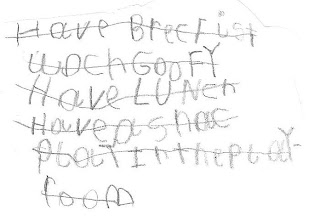 Have BrecFist
woch GooFY
Have LUNch
Have a snac
PLaY In the pLaY
room